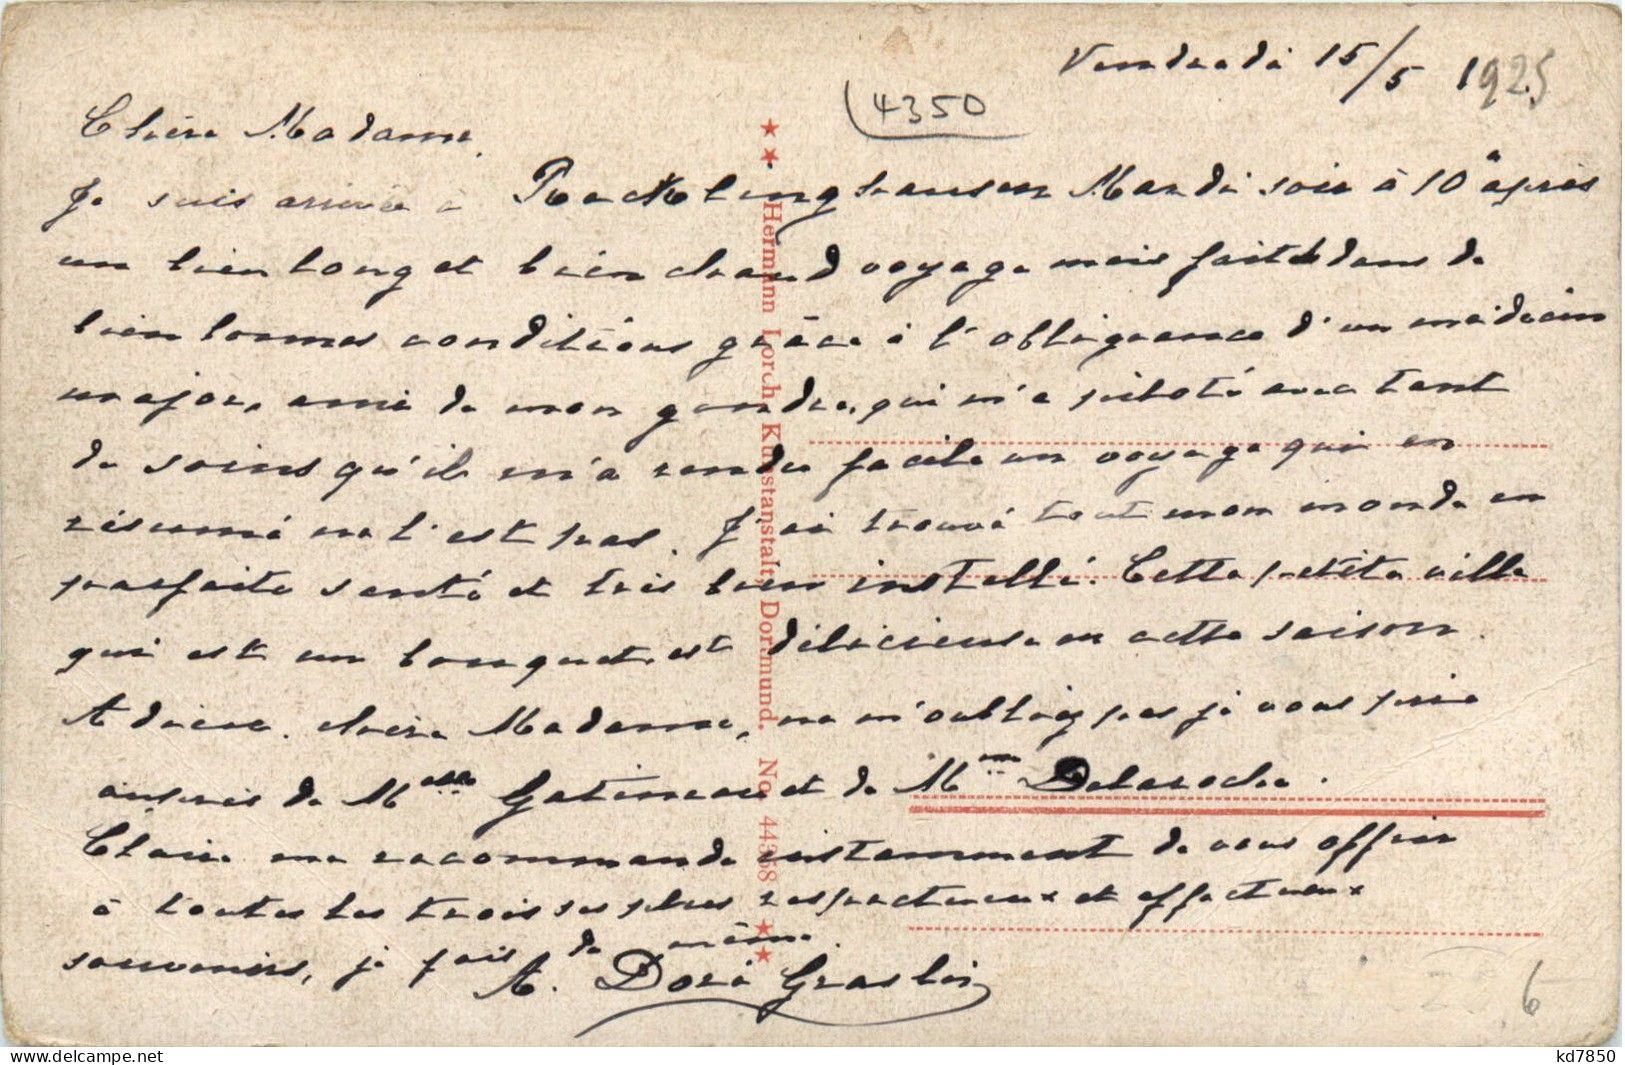 Vendredi 15/5 1925
4350
Chère Madame.
Je suis arrivée à Recklinghausen Mardi soir à 10h après
un bien long et bien chaud voyage mais fait dans de
bien bonnes conditions grâce à l'obligeance d'un médecin
major, ami de mon gendre, qui m'a piloté avec tant
de soins qu'il m'a rendu facile un voyage qui en
résumé ne l'est pas. J'ai trouvé tout mon monde en
parfaite santé et très bien installé. Cette petite ville
qui est un bouquet est délicieuse en cette saison.
Adieu. chère Madame, ne m'oubliez pas je vous prie
auprès de Melle Gatineau et de Mme Delaroche.
Claire me recommande instamment de vous offrir
à toutes les trois ses plus respectueux et affectueux
souvenirs, je fais de même.
A. Doré Graslin
★★ Hermann Lorch, Kunstanstalt, Dortmund. No. 44358 ★★
6
kd7850